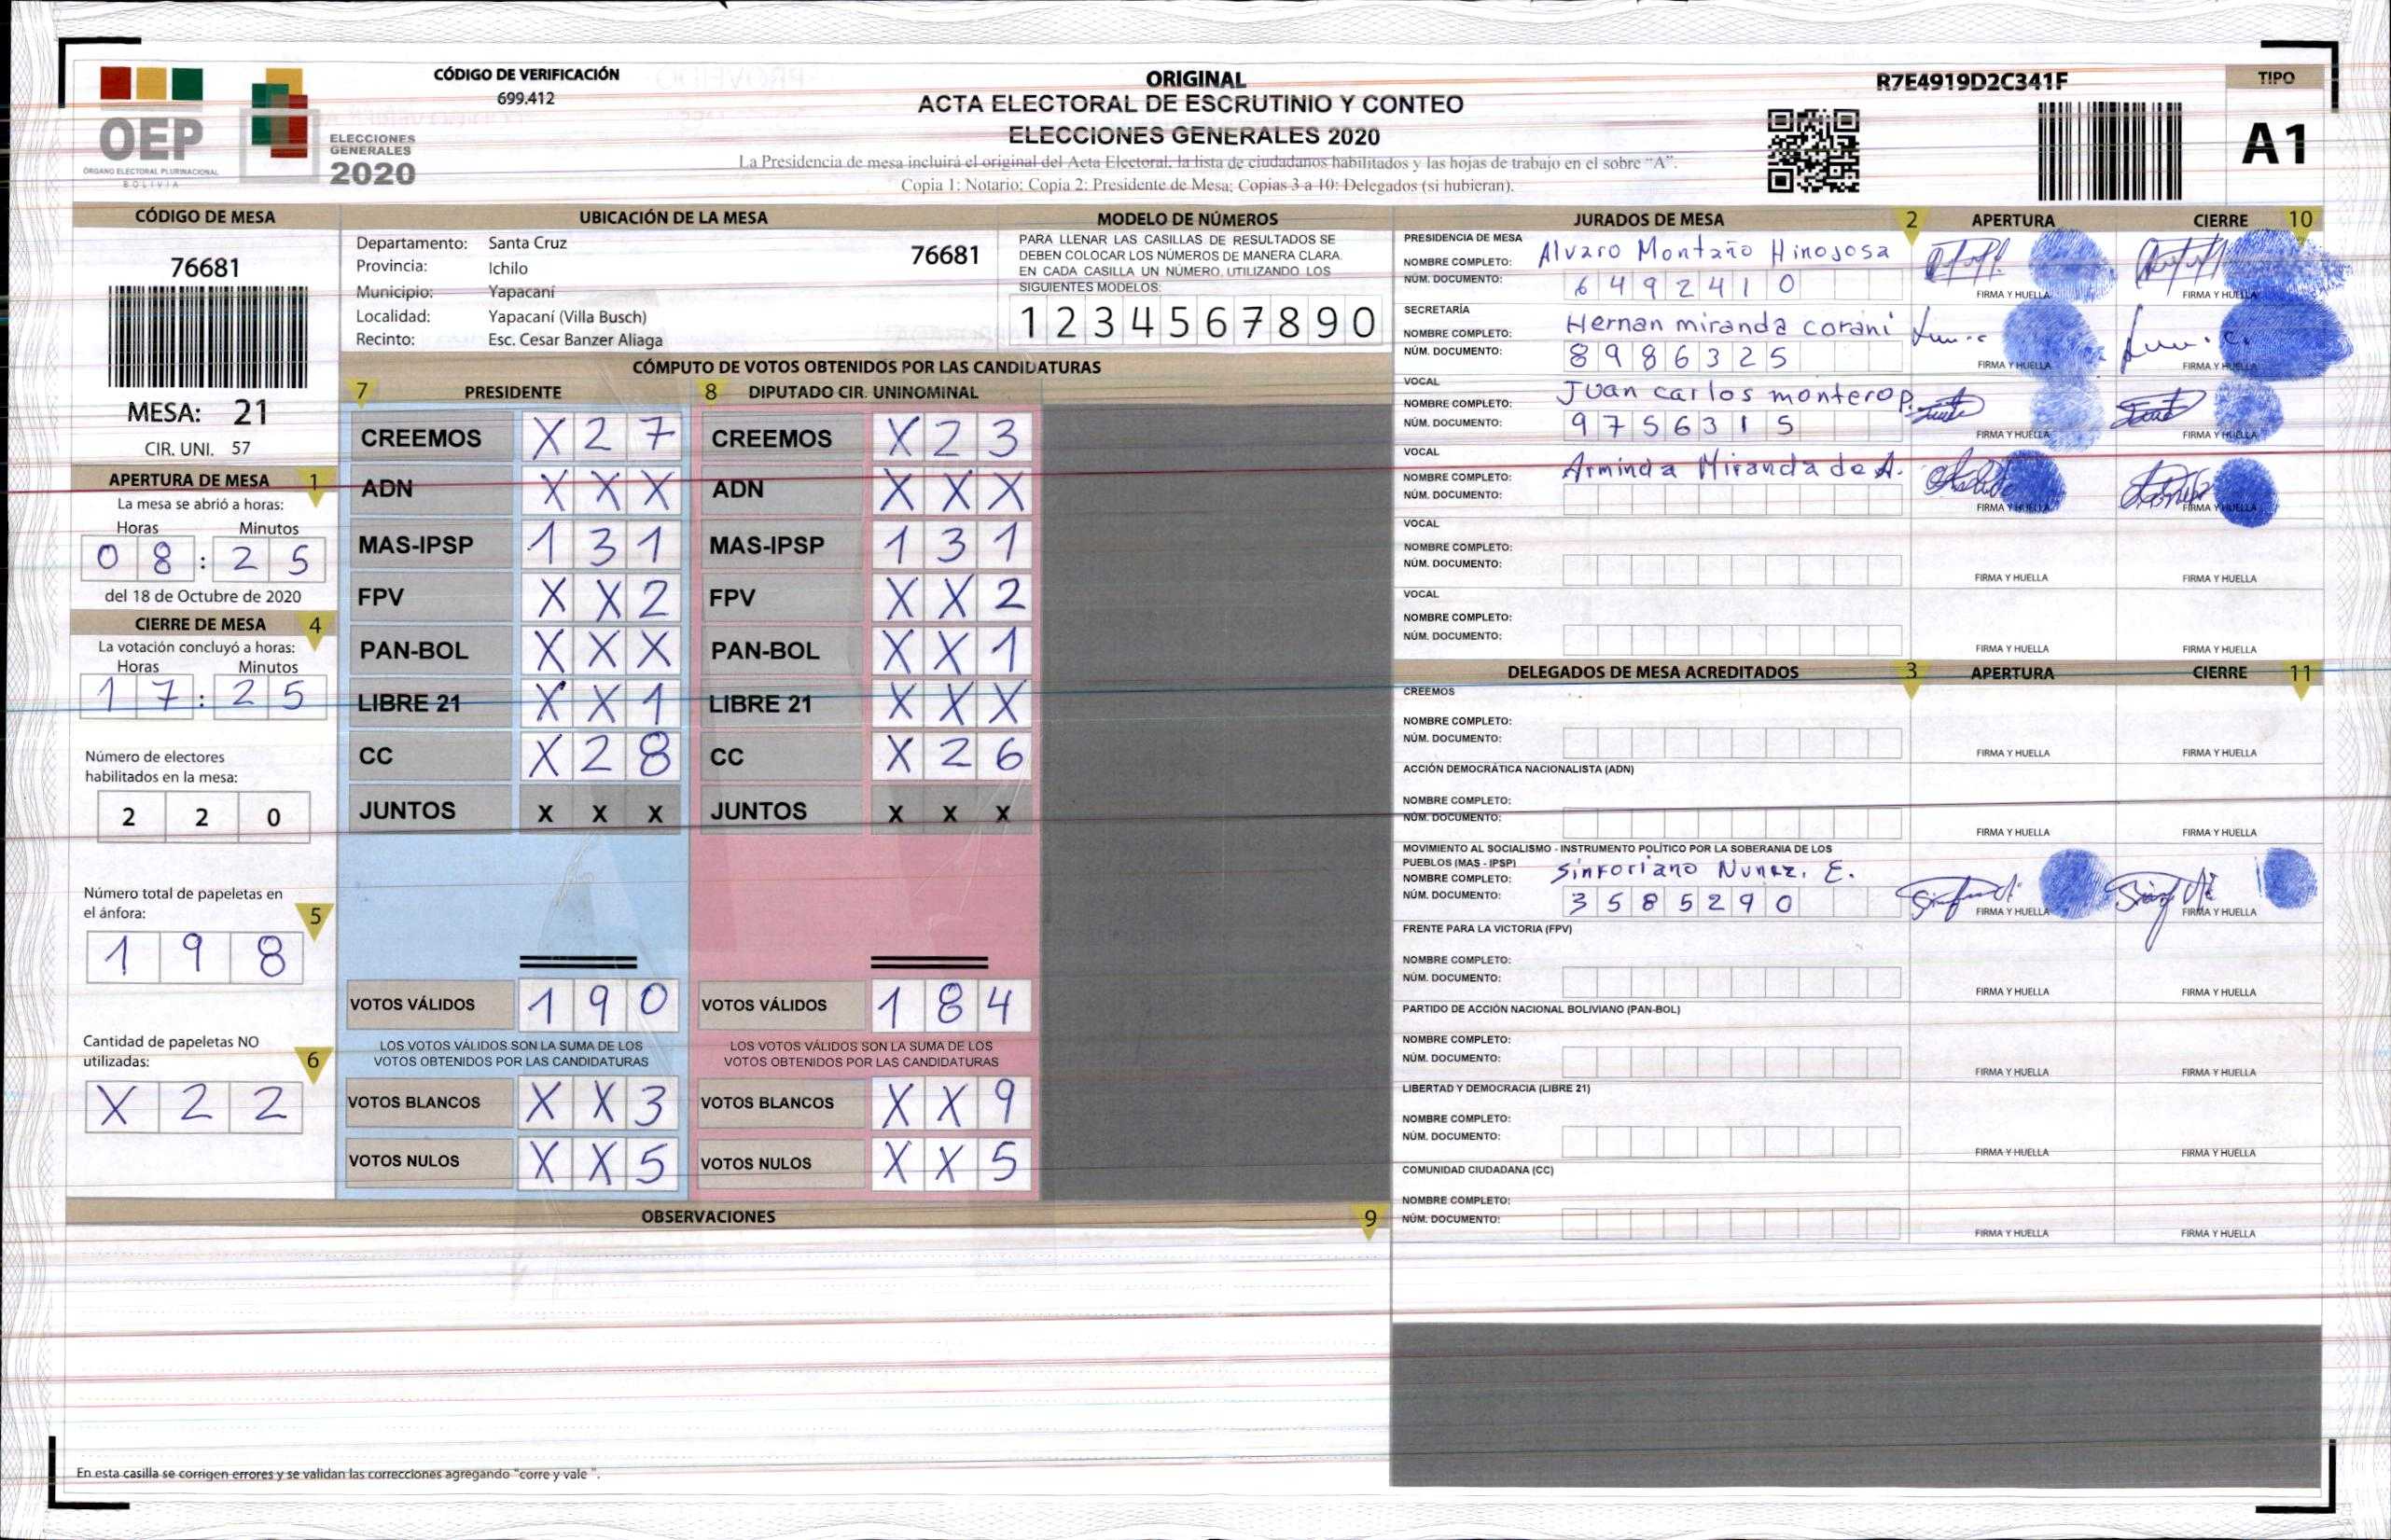 CÓDIGO DE VERIFICACIÓN
699.412
OEP
ÓRGANO ELECTORAL PLURINACIONAL
BOLIVIA
ELECCIONES
GENERALES
2020
ORIGINAL
ACTA ELECTORAL DE ESCRUTINIO Y CONTEO
ELECCIONES GENERALES 2020
La Presidencia de mesa incluirá el original del Acta Electoral, la lista de ciudadanos habilitados y las hojas de trabajo en el sobre “A”.
Copia 1: Notario; Copia 2: Presidente de Mesa; Copias 3 a 10: Delegados (si hubieran).
R7E4919D2C341F
TIPO
A1
CÓDIGO DE MESA
76681
MESA: 21
CIR. UNI. 57
APERTURA DE MESA 1
La mesa se abrió a horas:
Horas Minutos
0 8 : 2 5
del 18 de Octubre de 2020
CIERRE DE MESA 4
La votación concluyó a horas:
Horas Minutos
1 7 : 2 5
Número de electores
habilitados en la mesa:
2 2 0
Número total de papeletas en
el ánfora: 5
1 9 8
Cantidad de papeletas NO
utilizadas: 6
X 2 2
UBICACIÓN DE LA MESA
Departamento: Santa Cruz 76681
Provincia: Ichilo
Municipio: Yapacaní
Localidad: Yapacaní (Villa Busch)
Recinto: Esc. Cesar Banzer Aliaga
MODELO DE NÚMEROS
PARA LLENAR LAS CASILLAS DE RESULTADOS SE
DEBEN COLOCAR LOS NÚMEROS DE MANERA CLARA.
EN CADA CASILLA UN NÚMERO, UTILIZANDO LOS
SIGUIENTES MODELOS:
1 2 3 4 5 6 7 8 9 0
CÓMPUTO DE VOTOS OBTENIDOS POR LAS CANDIDATURAS
7 PRESIDENTE 8 DIPUTADO CIR. UNINOMINAL
CREEMOS X 2 7 CREEMOS X 2 3
ADN X X X ADN X X X
MAS-IPSP 1 3 1 MAS-IPSP 1 3 1
FPV X X 2 FPV X X 2
PAN-BOL X X X PAN-BOL X X 1
LIBRE 21 X X 1 LIBRE 21 X X X
CC X 2 8 CC X 2 6
JUNTOS X X X JUNTOS X X X
VOTOS VÁLIDOS 1 9 0 VOTOS VÁLIDOS 1 8 4
LOS VOTOS VÁLIDOS SON LA SUMA DE LOS LOS VOTOS VÁLIDOS SON LA SUMA DE LOS
VOTOS OBTENIDOS POR LAS CANDIDATURAS VOTOS OBTENIDOS POR LAS CANDIDATURAS
VOTOS BLANCOS X X 3 VOTOS BLANCOS X X 9
VOTOS NULOS X X 5 VOTOS NULOS X X 5
OBSERVACIONES 9
En esta casilla se corrigen errores y se validan las correcciones agregando "corre y vale ".
JURADOS DE MESA 2 APERTURA CIERRE 10
PRESIDENCIA DE MESA
NOMBRE COMPLETO: Alvaro Montaño Hinojosa
NÚM. DOCUMENTO: 6 4 9 2 4 1 0
FIRMA Y HUELLA FIRMA Y HUELLA
SECRETARÍA
NOMBRE COMPLETO: Hernan miranda corani
NÚM. DOCUMENTO: 8 9 8 6 3 2 5
FIRMA Y HUELLA FIRMA Y HUELLA
VOCAL
NOMBRE COMPLETO: Juan carlos montero P.
NÚM. DOCUMENTO: 9 7 5 6 3 1 5
FIRMA Y HUELLA FIRMA Y HUELLA
VOCAL
NOMBRE COMPLETO: Arminda Miranda de A.
NÚM. DOCUMENTO:
FIRMA Y HUELLA FIRMA Y HUELLA
VOCAL
NOMBRE COMPLETO:
NÚM. DOCUMENTO:
FIRMA Y HUELLA FIRMA Y HUELLA
VOCAL
NOMBRE COMPLETO:
NÚM. DOCUMENTO:
FIRMA Y HUELLA FIRMA Y HUELLA
DELEGADOS DE MESA ACREDITADOS 3 APERTURA CIERRE 11
CREEMOS
NOMBRE COMPLETO:
NÚM. DOCUMENTO:
FIRMA Y HUELLA FIRMA Y HUELLA
ACCIÓN DEMOCRÁTICA NACIONALISTA (ADN)
NOMBRE COMPLETO:
NÚM. DOCUMENTO:
FIRMA Y HUELLA FIRMA Y HUELLA
MOVIMIENTO AL SOCIALISMO - INSTRUMENTO POLÍTICO POR LA SOBERANIA DE LOS
PUEBLOS (MAS - IPSP)
NOMBRE COMPLETO: Sinforiano Nunez. E.
NÚM. DOCUMENTO: 3 5 8 5 2 9 0
FIRMA Y HUELLA FIRMA Y HUELLA
FRENTE PARA LA VICTORIA (FPV)
NOMBRE COMPLETO:
NÚM. DOCUMENTO:
FIRMA Y HUELLA FIRMA Y HUELLA
PARTIDO DE ACCIÓN NACIONAL BOLIVIANO (PAN-BOL)
NOMBRE COMPLETO:
NÚM. DOCUMENTO:
FIRMA Y HUELLA FIRMA Y HUELLA
LIBERTAD Y DEMOCRACIA (LIBRE 21)
NOMBRE COMPLETO:
NÚM. DOCUMENTO:
FIRMA Y HUELLA FIRMA Y HUELLA
COMUNIDAD CIUDADANA (CC)
NOMBRE COMPLETO:
NÚM. DOCUMENTO:
FIRMA Y HUELLA FIRMA Y HUELLA